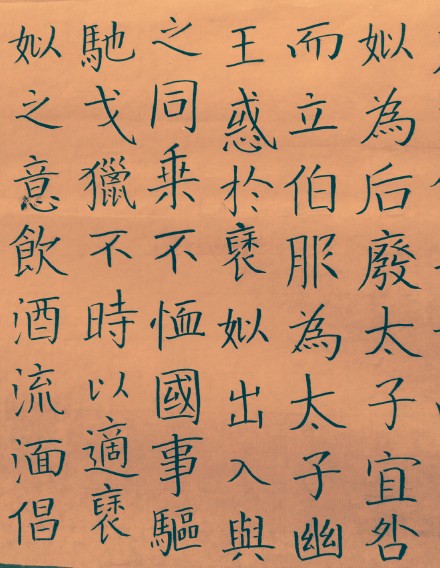 姒為后廢太子宜咎
而立伯服為太子幽
王惑於褒姒出入與
之同乗不恤國事驅
馳戈獵不時以適褒
姒之意飲酒流湎倡